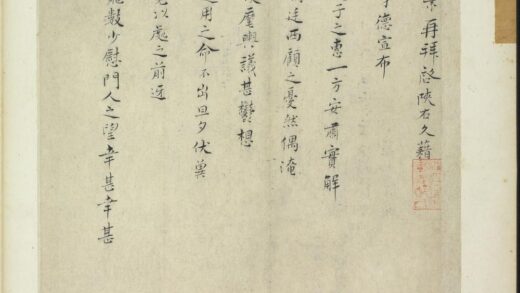 再拜啓陝右久藉
德宣布
子之惠一方安肅實解
廷西顧之憂然偶淹
麾輿議甚鬱想
用之命不出旦夕伏冀
以處之前迓
數少慰門人之望幸甚幸甚